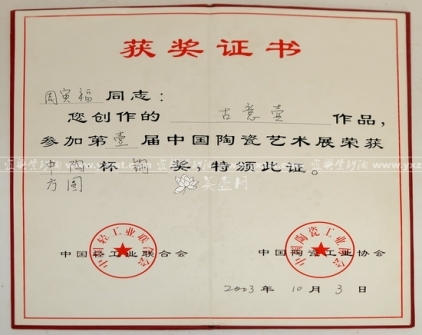 获奖证书
周寅福 同志：
您创作的 古意壶 作品，
参加第壹届中国陶瓷艺术展荣获
中陶 杯 铜 奖，特颁此证。
方圆
中国轻工业联合会
中国陶瓷工业协会
2003 年 10 月 3 日